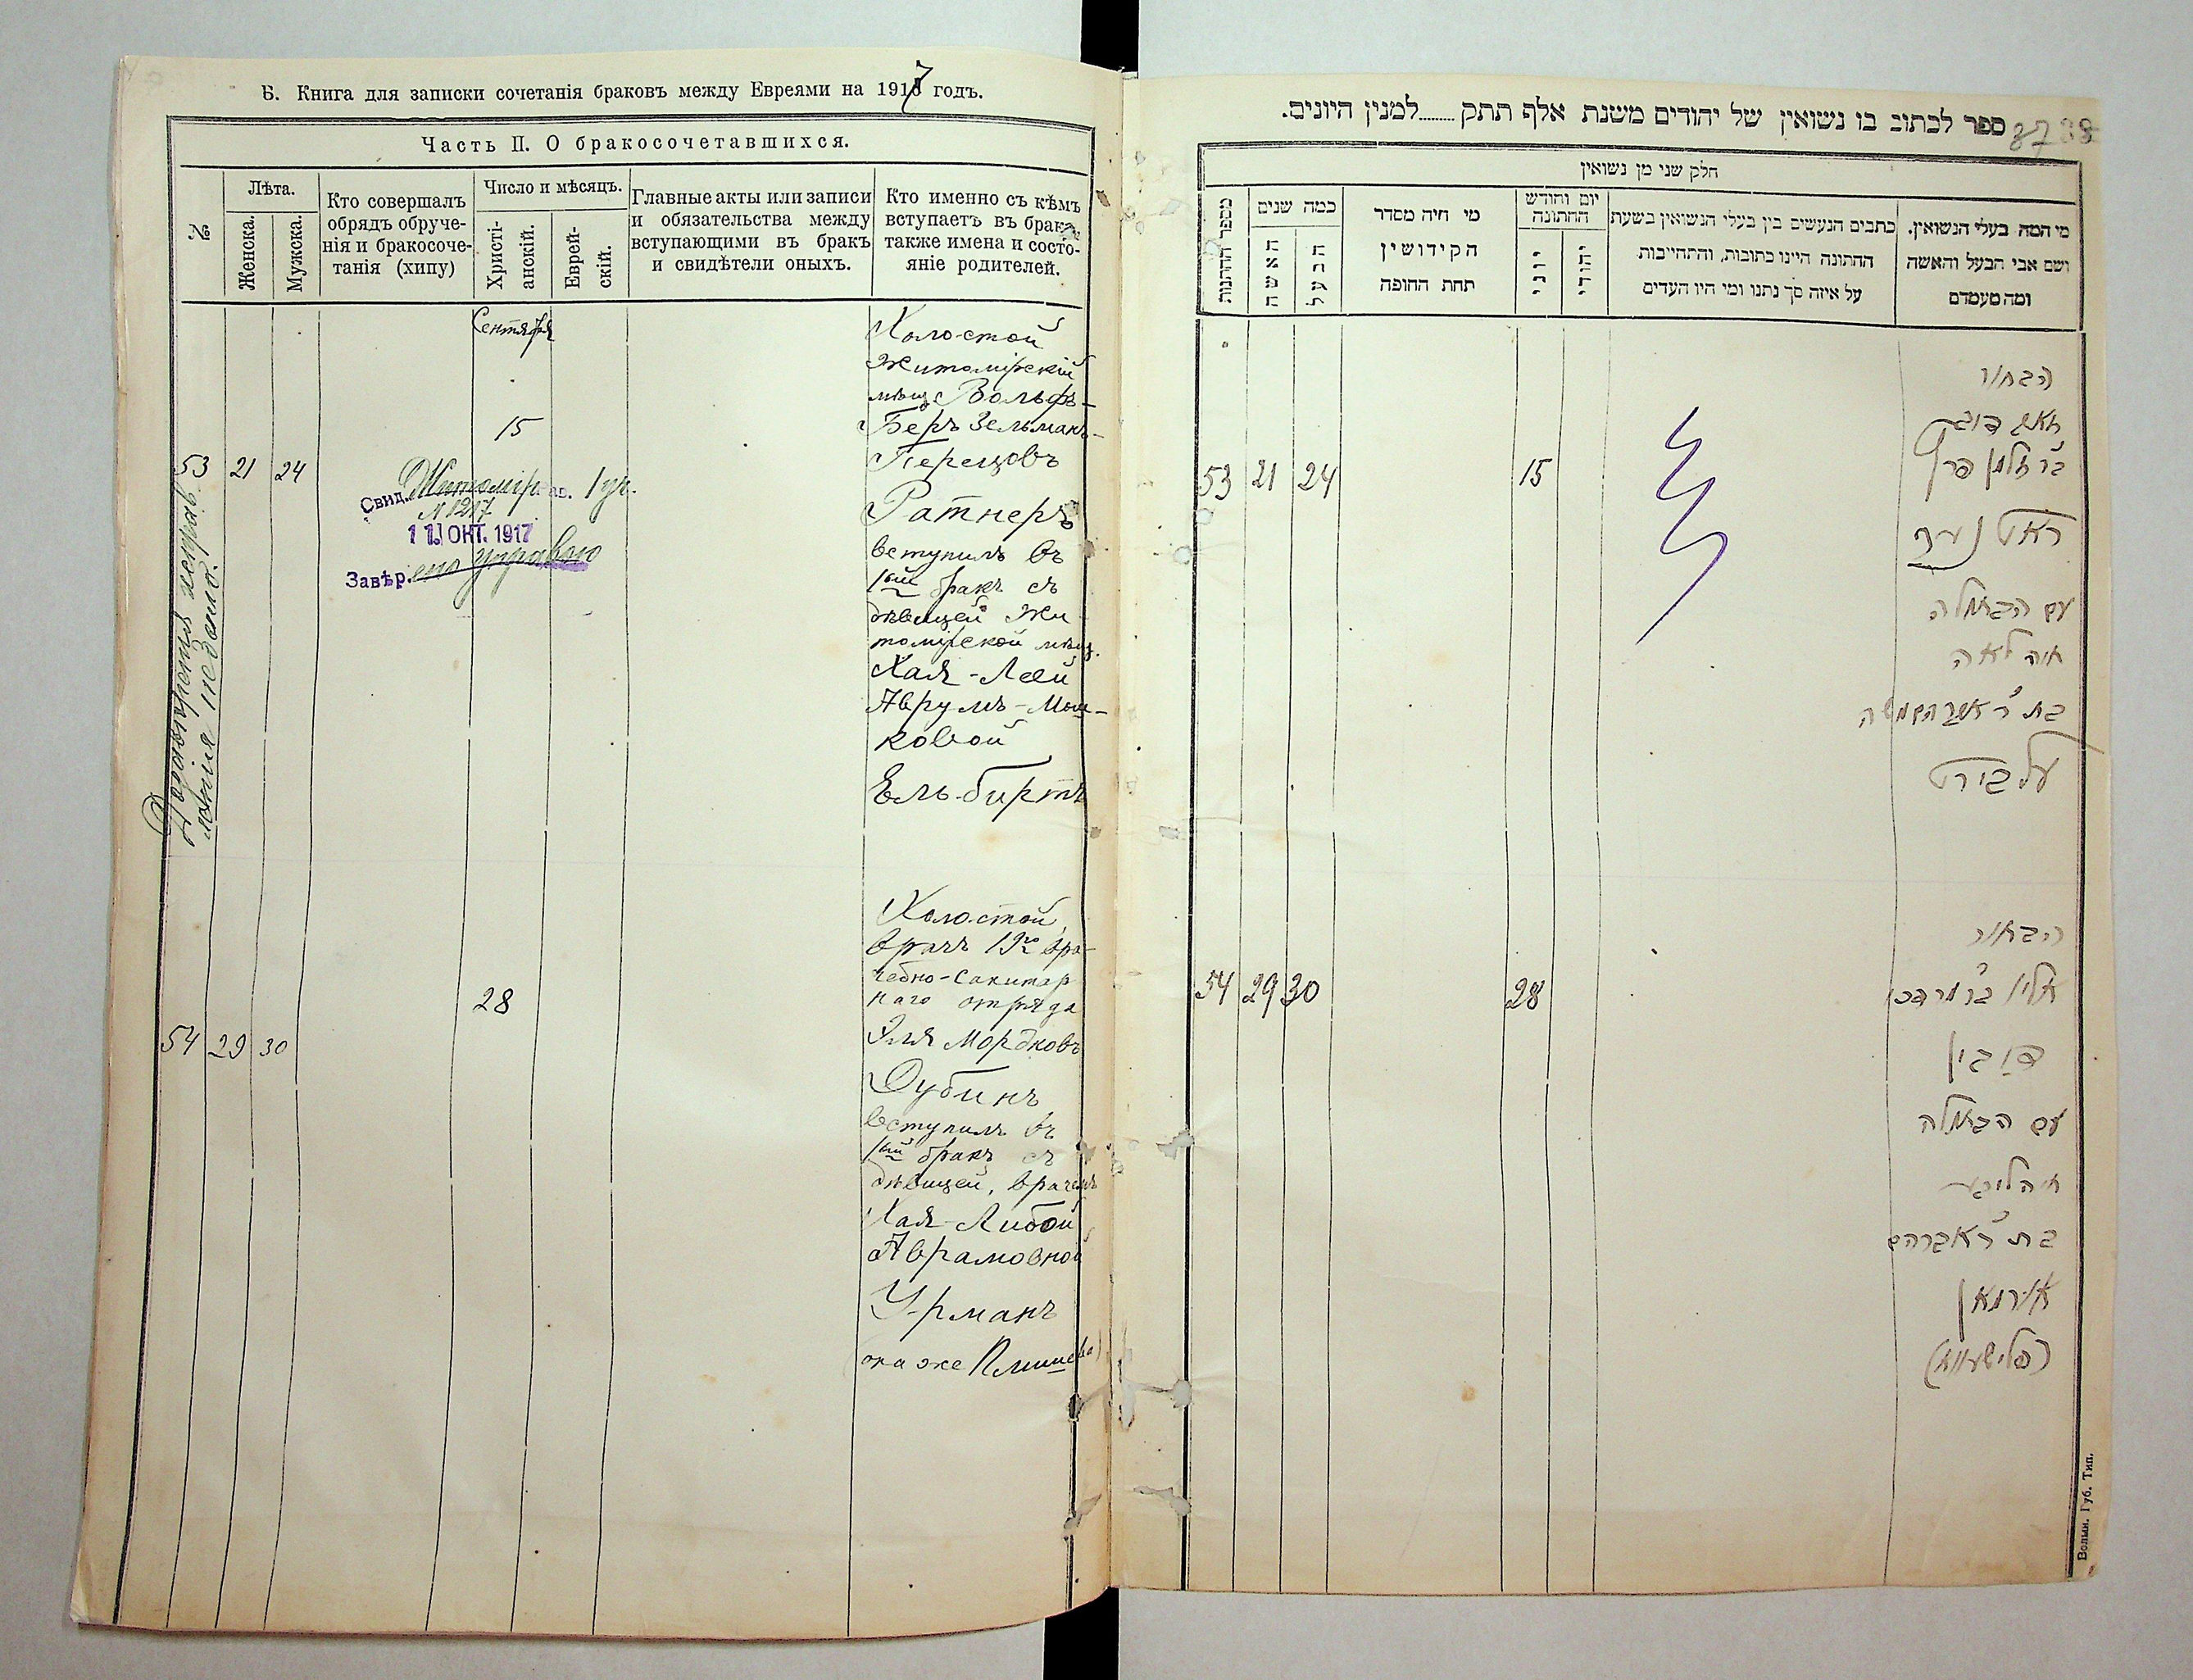 Б. Книга для записки сочетанія браковъ между Евреями на 1917 годъ.
Часть II. О бракосочетавшихся.
№
Лѣта.
Женска.
Мужска.
Кто совершалъ
обрядъ обруче-
нія и бракосоче-
танія (хипу)
Число и мѣсяцъ.
Христі-
анскій.
Еврей-
скій.
Главные акты или записи
и обязательства между
вступающими въ бракъ
и свидѣтели оныхъ.
Кто именно съ кѣмъ
вступаетъ въ бракъ
также имена и состо-
яніе родителей.
Сентября
15
53 21 24
Свид. Житомір. 1 уч.
N 1217
11 ОКТ. 1917
Завѣр.
Холостой
Житомірскій
мѣщ. Вольфъ-
Беръ Зельманъ-
Перецовъ
Ратнеръ
вступилъ въ
1ый бракъ съ
дѣвицей Жи-
томірской мѣщ.
Хая-Леей
Аврумъ-Мош-
ковой
Ельбиртъ
28
54 29 30
Холостой,
врачъ 19го вра-
чебно-санитар
наго отряда
Эля Мордковъ
Дубинъ
вступилъ въ
1ый бракъ съ
дѣвицей, врачемъ
Хая-Либой
Аврамовной
Урманъ
(она же Плишева)
ספר לכתוב בו נשואין של יהודים משנת אלף תתק........למנין היונים.
87
חלק שני מן נשואין
מספר החתונות
כמה שנים
האשה
הבעל
מי היה מסדר
הקידושין
תחת החופה
יום וחודש
החתונה
יוני
יהודי
כתבים הנעשים בין בעלי הנשואין בשעת
החתונה היינו כתובות, והתחייבות
על איזה סך נתנו ומי היו העדים
מי המה בעלי הנשואין.
ושם אבי הבעל והאשה
ומה מעמדם
53 21 24 15
הבחור
זאב דוב
ב״ר זלמן פרץ
ראטנער
עם הבתולה
חיה לאה
בת ר׳ אברהם משה
עלבירט
54 29 30 28
הבחור
אליו ב״ר מרדכי
דובין
עם הבתולה
חיה ליבע
בת ר׳ אברהם
אורמאן
(פלישעווא)
Волын. Губ. Тип.